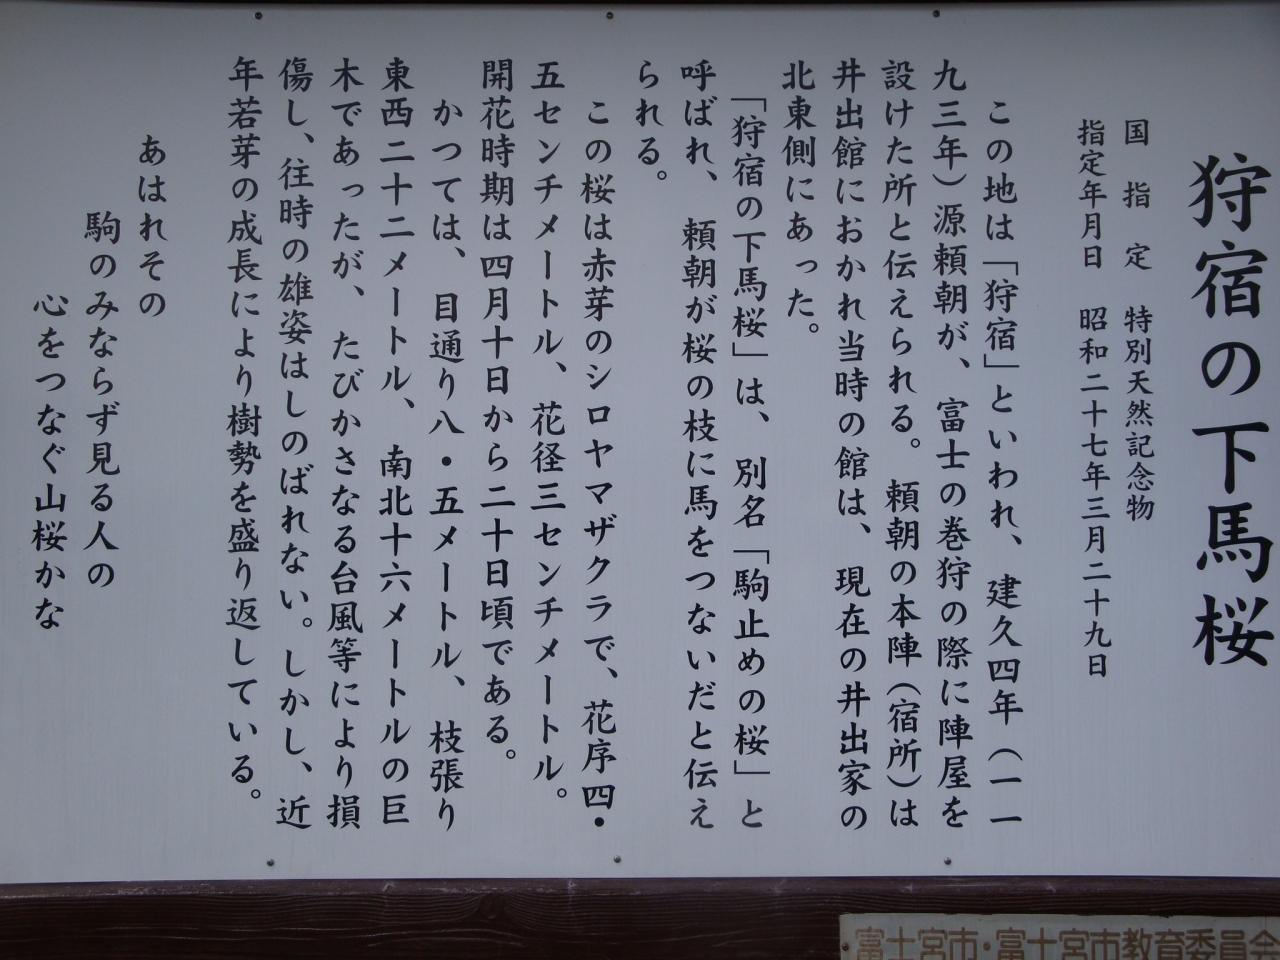 狩宿の下馬桜
国指定　特別天然記念物
指定年月日　昭和二十七年三月二十九日
この地は「狩宿」といわれ、建久四年（一一
九三年）源頼朝が、富士の巻狩の際に陣屋を
設けた所と伝えられる。頼朝の本陣（宿所）は
井出館におかれ当時の館は、現在の井出家の
北東側にあった。
「狩宿の下馬桜」は、別名「駒止めの桜」と
呼ばれ、頼朝が桜の枝に馬をつないだと伝え
られる。
この桜は赤芽のシロヤマザクラで、花序四・
五センチメートル、花径三センチメートル。
開花時期は四月十日から二十日頃である。
かつては、目通り八・五メートル、枝張り
東西二十二メートル、南北十六メートルの巨
木であったが、たびかさなる台風等により損
傷し、往時の雄姿はしのばれない。しかし、近
年若芽の成長により樹勢を盛り返している。
あはれその
駒のみならず見る人の
心をつなぐ山桜かな
富士宮市・富士宮市教育委員会